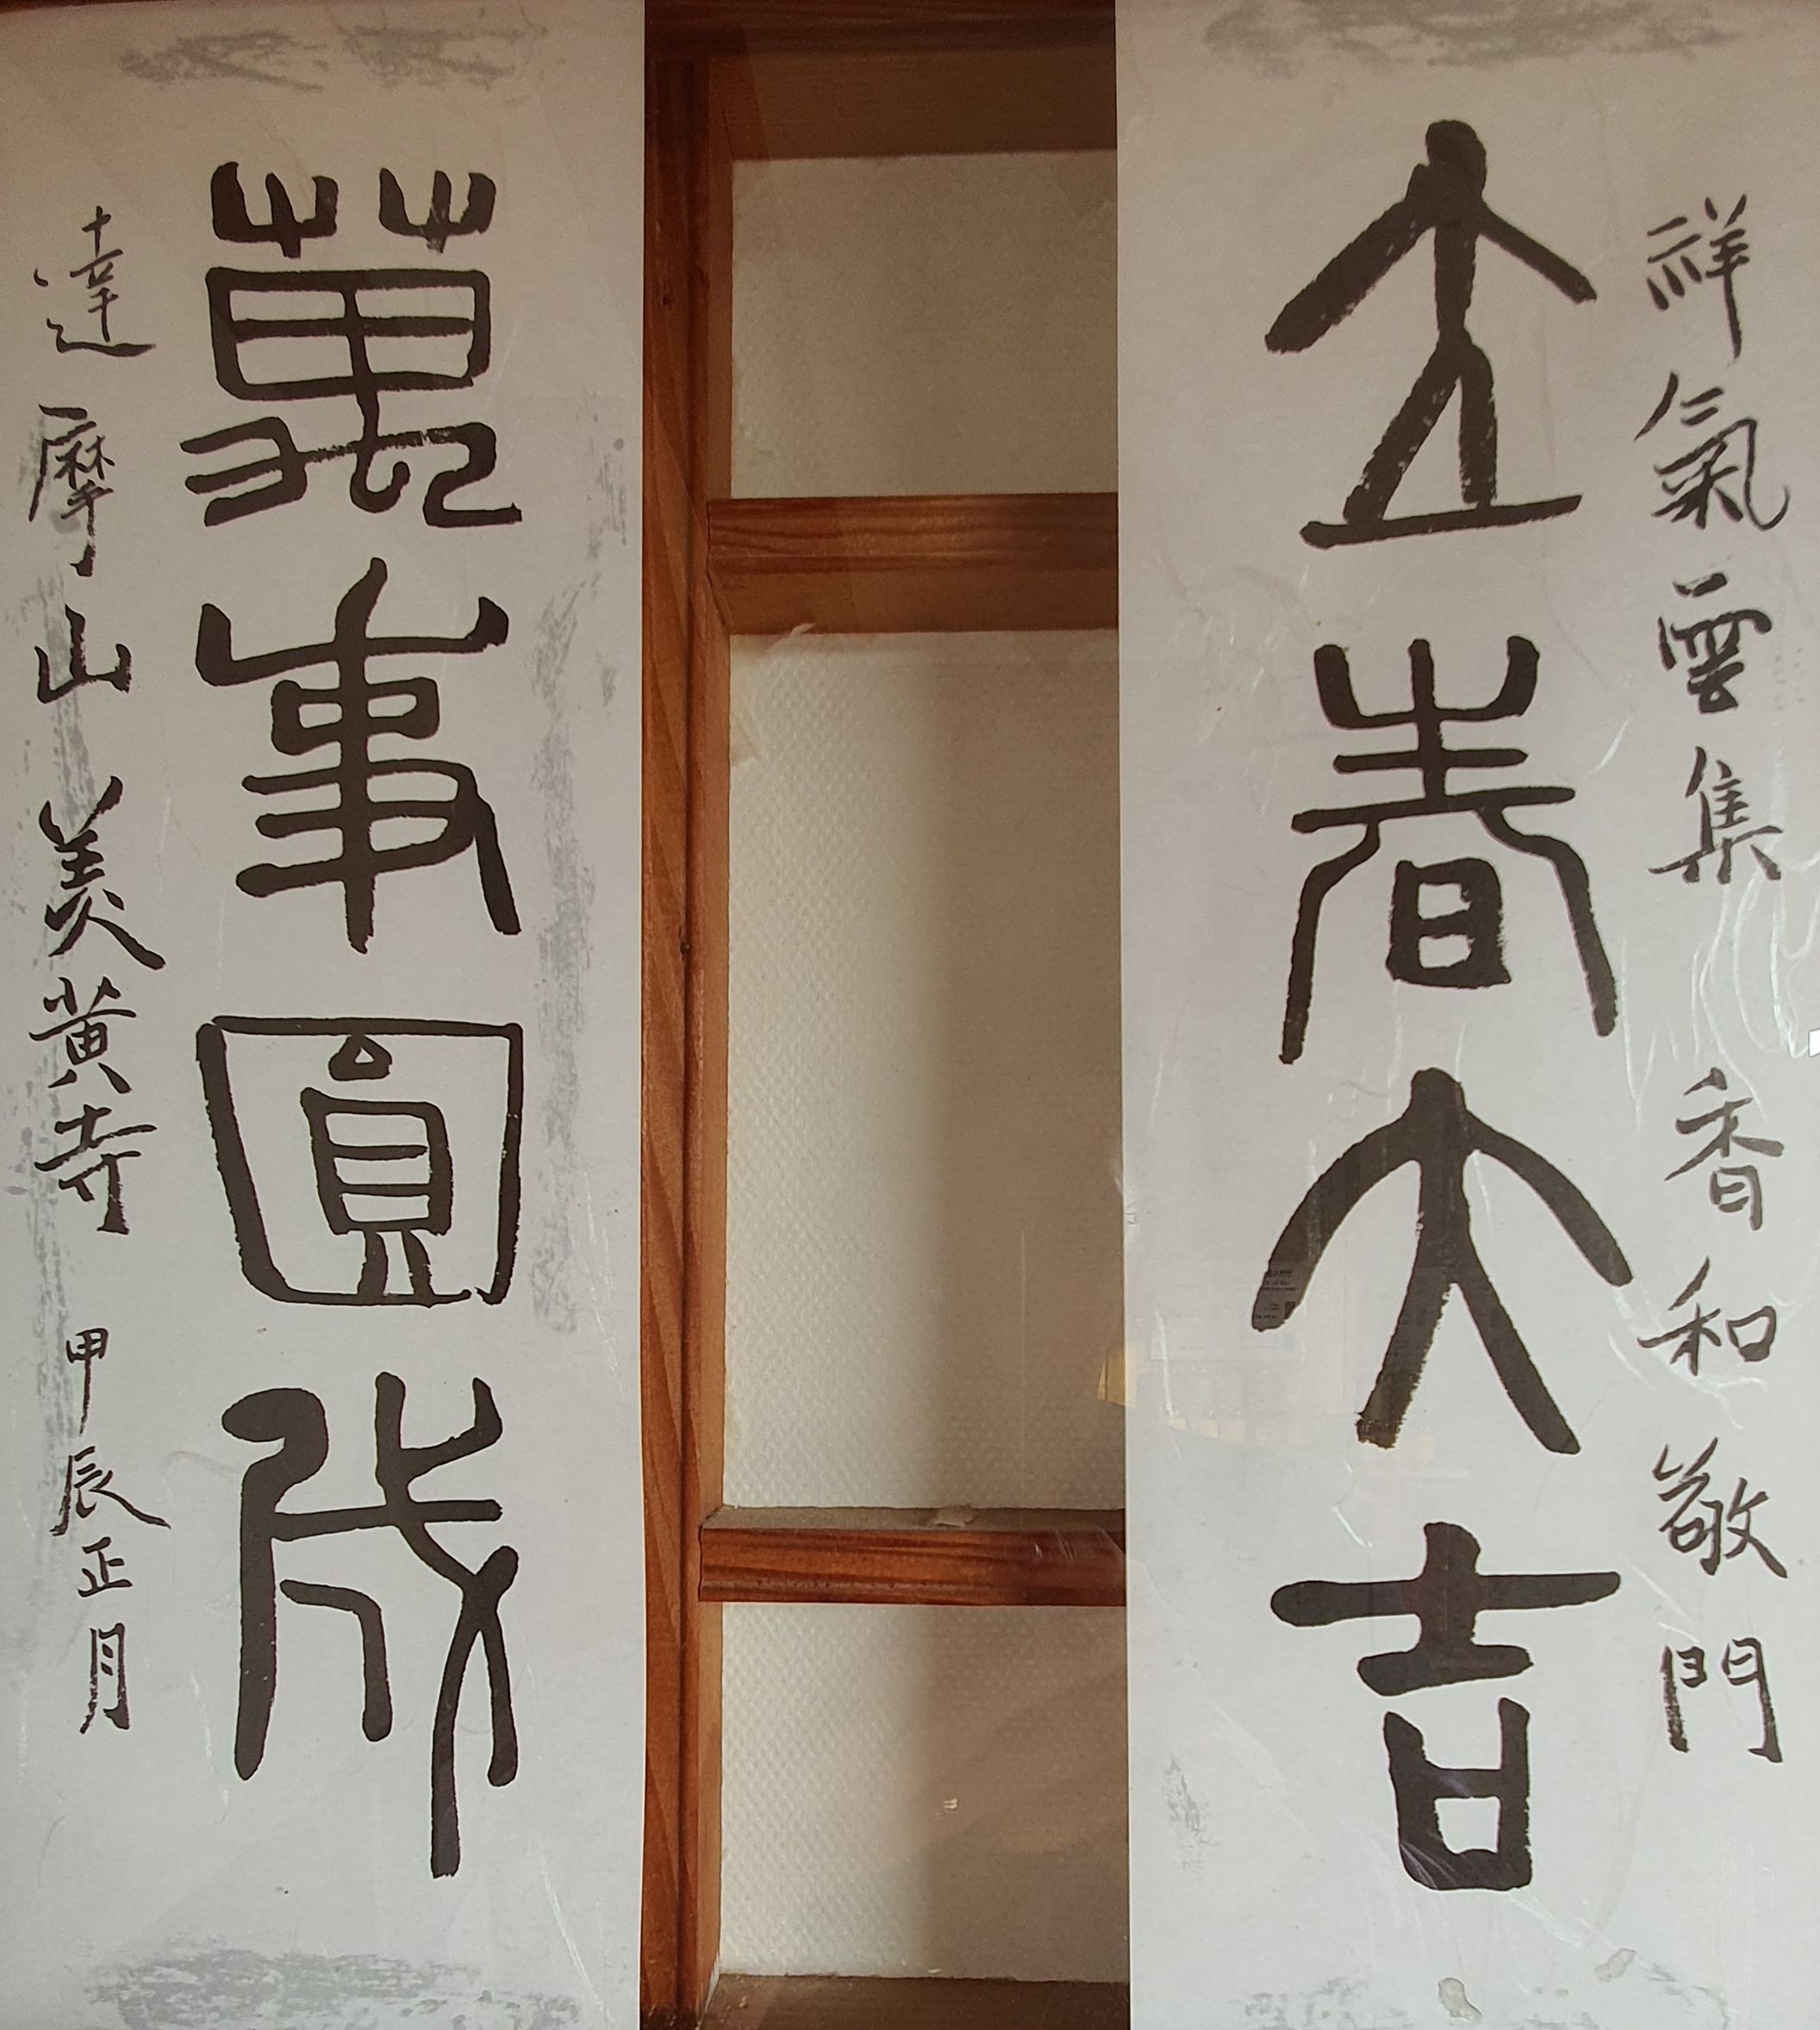 祥氣雲集 香和敬門
立春大吉
萬事圓成
達摩山 美黃寺 甲辰正月